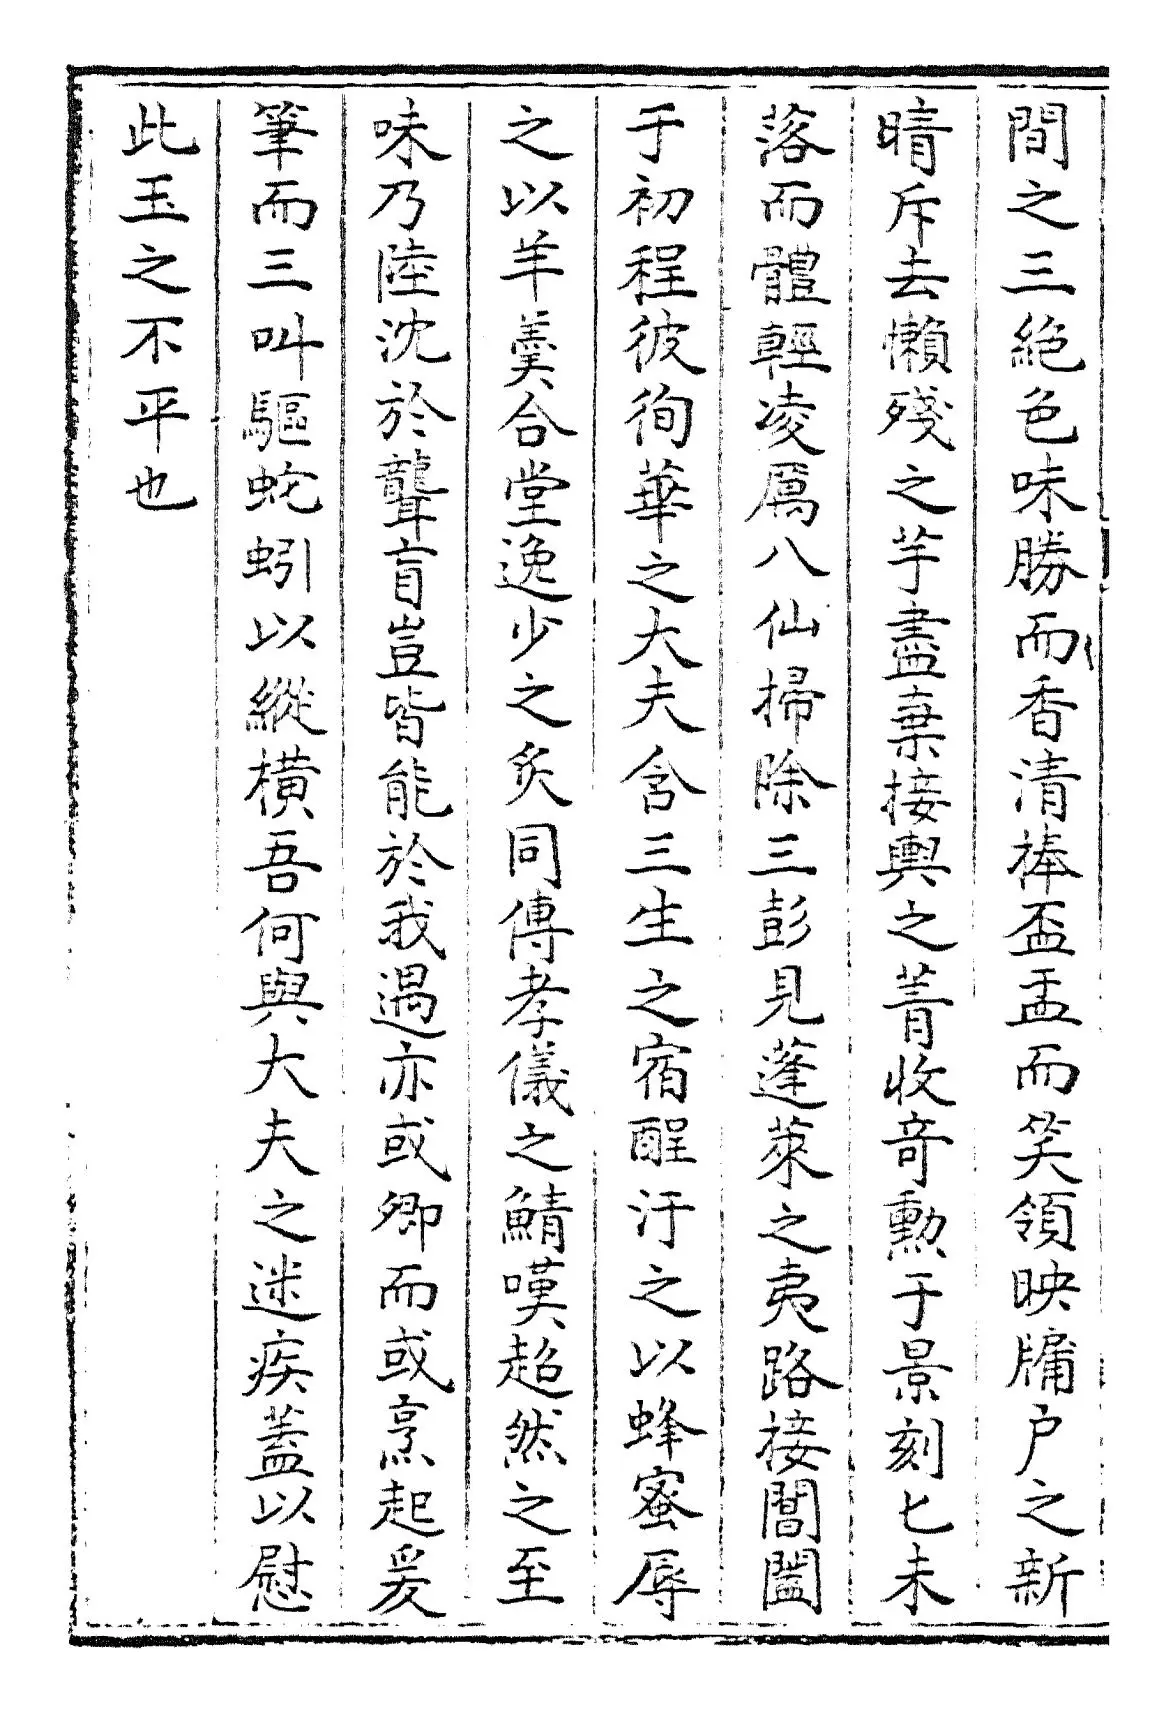 間之三絶色味勝而香清棒盃盂而笑領映牗户之新
晴斥去懶殘之芋盡棄接輿之菁收竒勲于景刻匕未
落而體輕凌厲八仙掃除三彭見蓬萊之夷路接閶闔
于初程彼徇華之大夫含三生之宿酲汙之以蜂蜜辱
之以羊羹合堂逸少之炙同傳孝儀之鯖嘆超然之至
味乃陸沈於聾盲豈皆能於我遇亦或卿而或烹起爰
筆而三叫驅蛇蚓以縱横吾何與大夫之迷疾蓋以慰
此玉之不平也